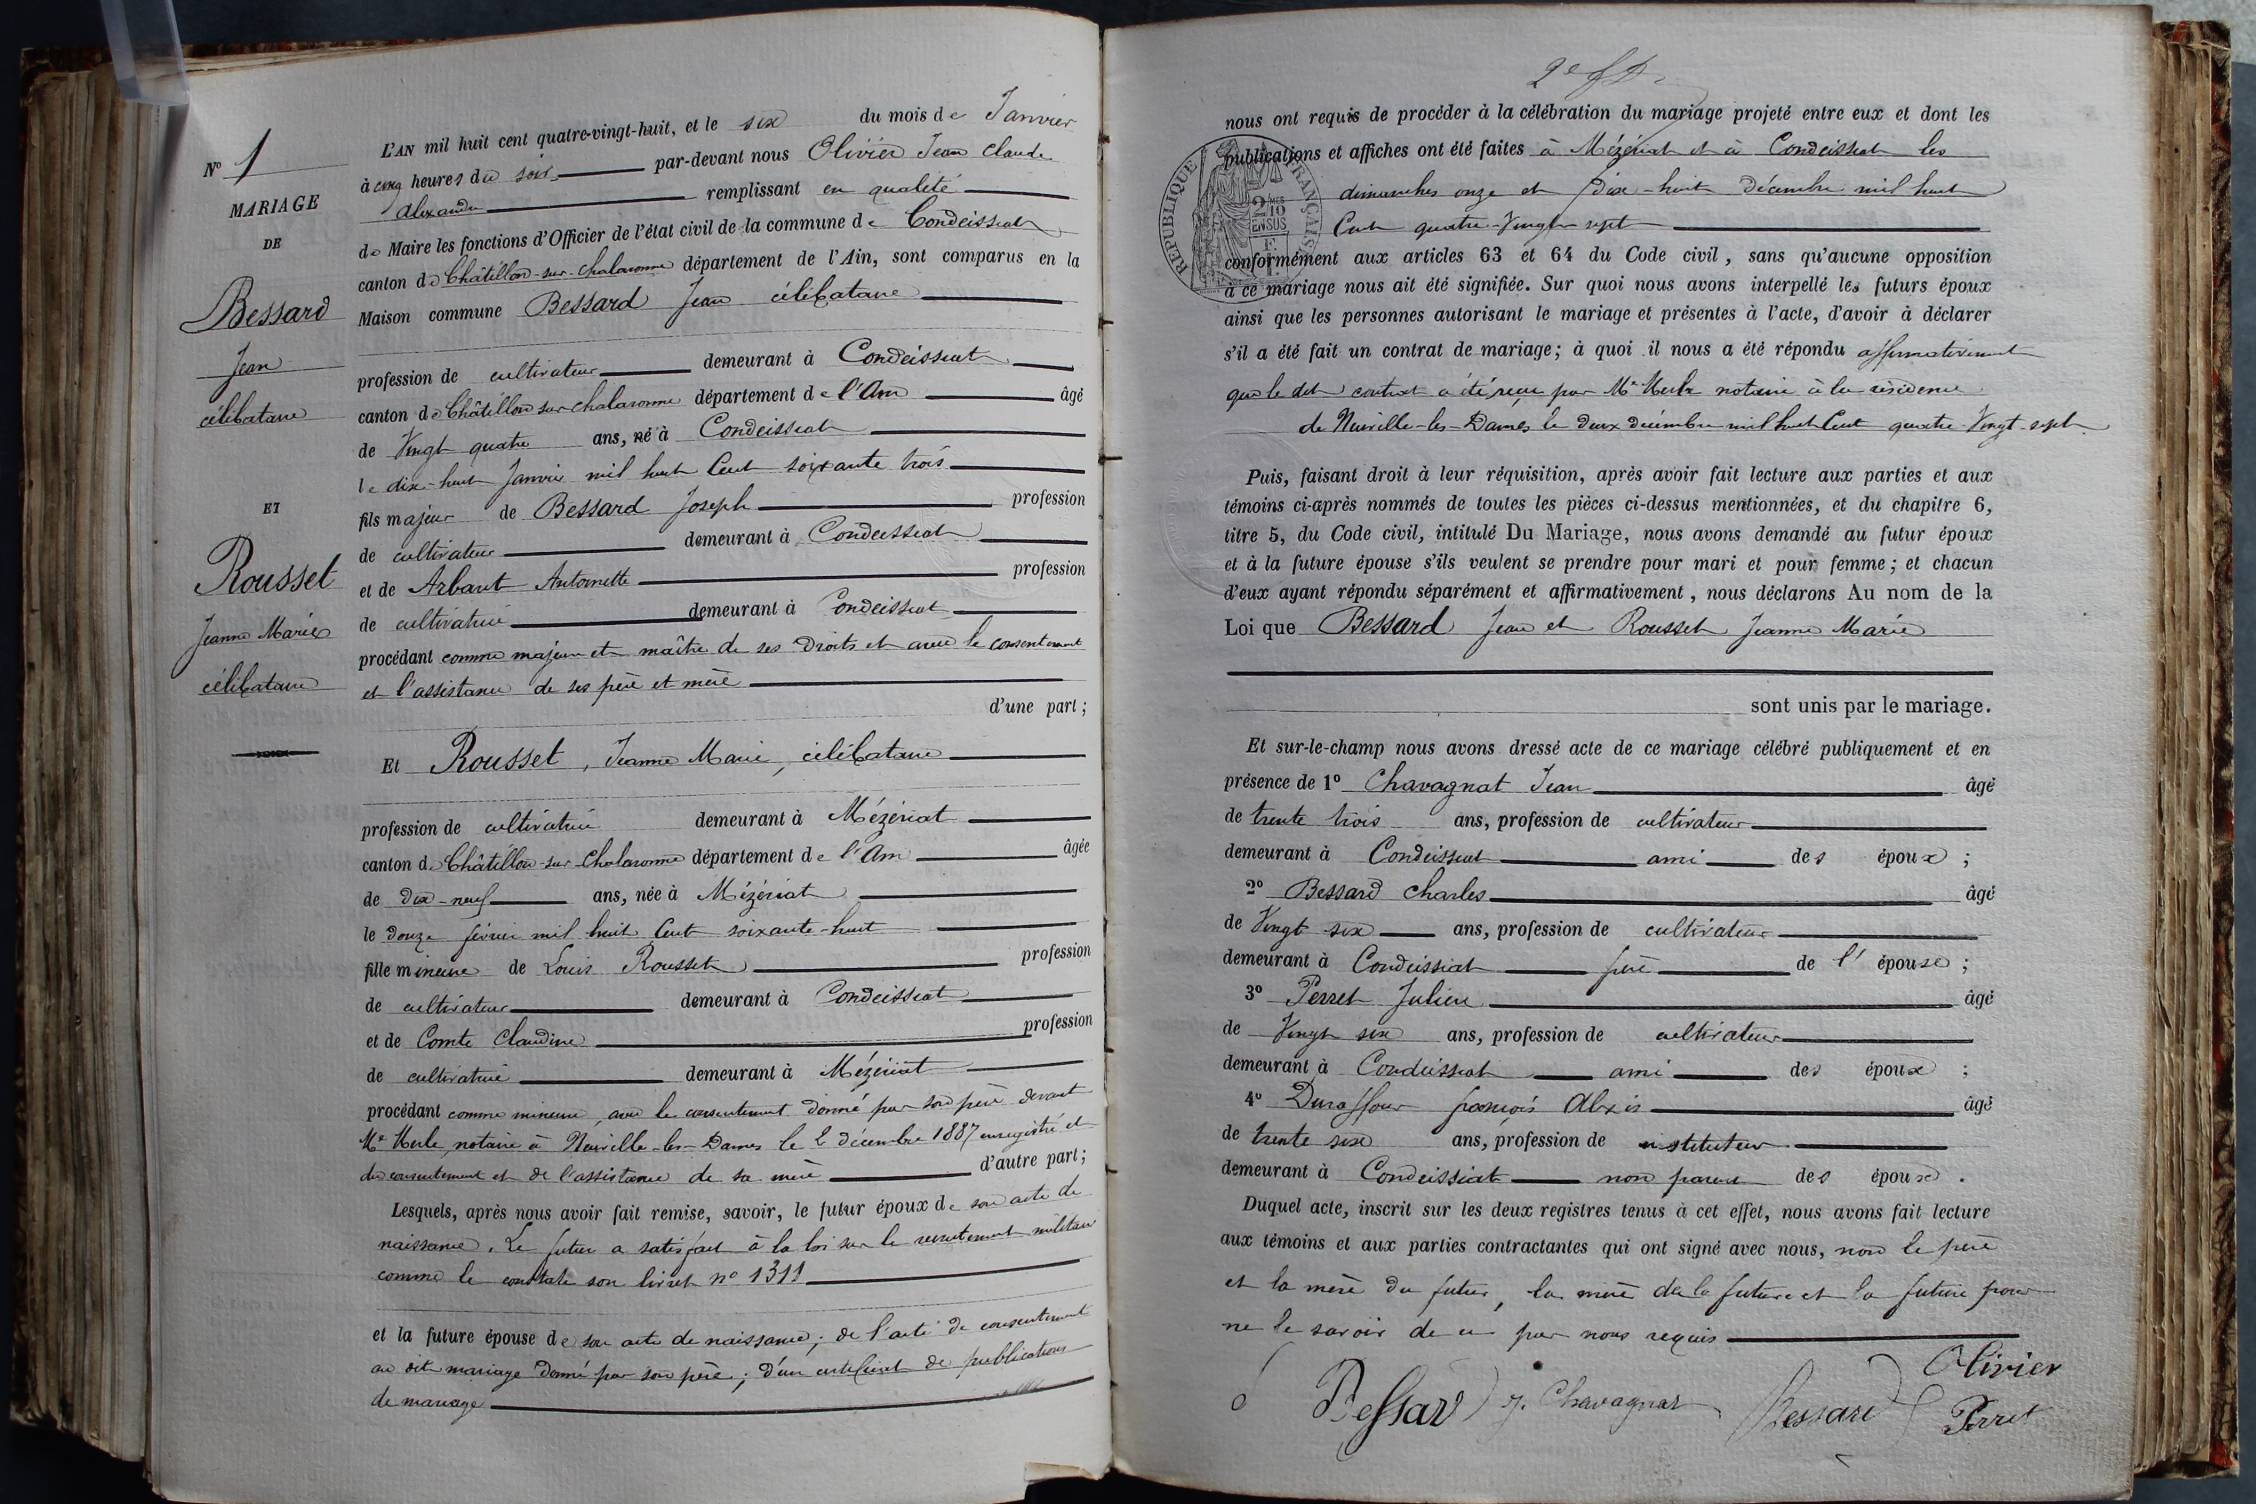 N° 1
MARIAGE
DE
Bessard
Jean
célibataire
ET
Rousset
Jeanne Marie
célibataire
L'AN mil huit cent quatre-vingt-huit, et le six du mois de Janvier
à cinq heures du soir par-devant nous Olivier Jean Claude
Alexandre remplissant en qualité
de Maire les fonctions d'Officier de l'état civil de la commune de Condeissiat
canton de Châtillon-sur-Chalaronne département de l'Ain, sont comparus en la
Maison commune Bessard Jean célibataire
profession de cultivateur demeurant à Condeissiat
canton de Châtillon sur Chalaronne département de l'Ain âgé
de Vingt quatre ans, né à Condeissiat
le dix-huit Janvier mil huit Cent soixante trois
fils majeur de Bessard Joseph profession
de cultivateur demeurant à Condeissiat
et de Arbant Antoinette profession
de cultivatrice demeurant à Condeissiat
procédant comme majeur et maître de ses Droits et avec le consentement
et l'assistance de ses père et mère
d'une part;
Et Rousset, Jeanne Marie, célibataire
profession de cultivatrice demeurant à Mézériat
canton de Châtillon-sur-Chalaronne département de l'Ain âgée
de Dix-neuf ans, née à Mézériat
le douze février mil huit Cent soixante-huit
fille mineure de Louis Rousset profession
de cultivateur demeurant à Condeissiat
et de Comte Claudine profession
de cultivatrice demeurant à Mézériat
procédant comme mineure, avec le consentement donné par son père devant
Me Merle, notaire à Neuville-les-Dames le 2 décembre 1887 enregistré et
du consentement et de l'assistance de sa mère d'autre part;
Lesquels, après nous avoir fait remise, savoir, le futur époux de son acte de
naissance. Le futur a satisfait à la loi sur le recrutement militaire
comme le constate son livret n° 1311
et la future épouse de son acte de naissance; de l'acte de consentement
au dit mariage donné par son père; d'un certificat de publications
de mariage
nous ont requis de procéder à la célébration du mariage projeté entre eux et dont les
publications et affiches ont été faites à Mézériat et à Condeissiat les
dimanches onze et dix-huit décembre mil huit
Cent quatre-Vingt-sept
RÉPUBLIQUE FRANÇAISE
2 MES
10
EN SUS
conformément aux articles 63 et 64 du Code civil, sans qu'aucune opposition
à ce mariage nous ait été signifiée. Sur quoi nous avons interpellé les futurs époux
ainsi que les personnes autorisant le mariage et présentes à l'acte, d'avoir à déclarer
s'il a été fait un contrat de mariage; à quoi il nous a été répondu affirmativement
que le dit contrat a été reçu par Me Merle notaire à la résidence
de Neuville-les-Dames le deux décembre mil huit Cent quatre Vingt-sept
Puis, faisant droit à leur réquisition, après avoir fait lecture aux parties et aux
témoins ci-après nommés de toutes les pièces ci-dessus mentionnées, et du chapitre 6,
titre 5, du Code civil, intitulé Du Mariage, nous avons demandé au futur époux
et à la future épouse s'ils veulent se prendre pour mari et pour femme; et chacun
d'eux ayant répondu séparément et affirmativement, nous déclarons Au nom de la
Loi que Bessard Jean et Rousset Jeanne Marie
sont unis par le mariage.
Et sur-le-champ nous avons dressé acte de ce mariage célébré publiquement et en
présence de 1° Chavagnat Jean âgé
de trente trois ans, profession de cultivateur
demeurant à Condeissiat ami des époux;
2° Bessard Charles âgé
de Vingt six ans, profession de cultivateur
demeurant à Condeissiat de l'épouse;
3° Perret Julien âgé
de Vingt six ans, profession de cultivateur
demeurant à Condeissiat ami des époux;
4° Duraffour françois Alexis âgé
de trente six ans, profession de instituteur
demeurant à Condeissiat non parent des époux.
Duquel acte, inscrit sur les deux registres tenus à cet effet, nous avons fait lecture
aux témoins et aux parties contractantes qui ont signé avec nous, non le père
et la mère du futur, la mère de la future et la future pour
ne le savoir de ce par nous requis
Olivier
Bessard J. Chavagnat Bessard Perret